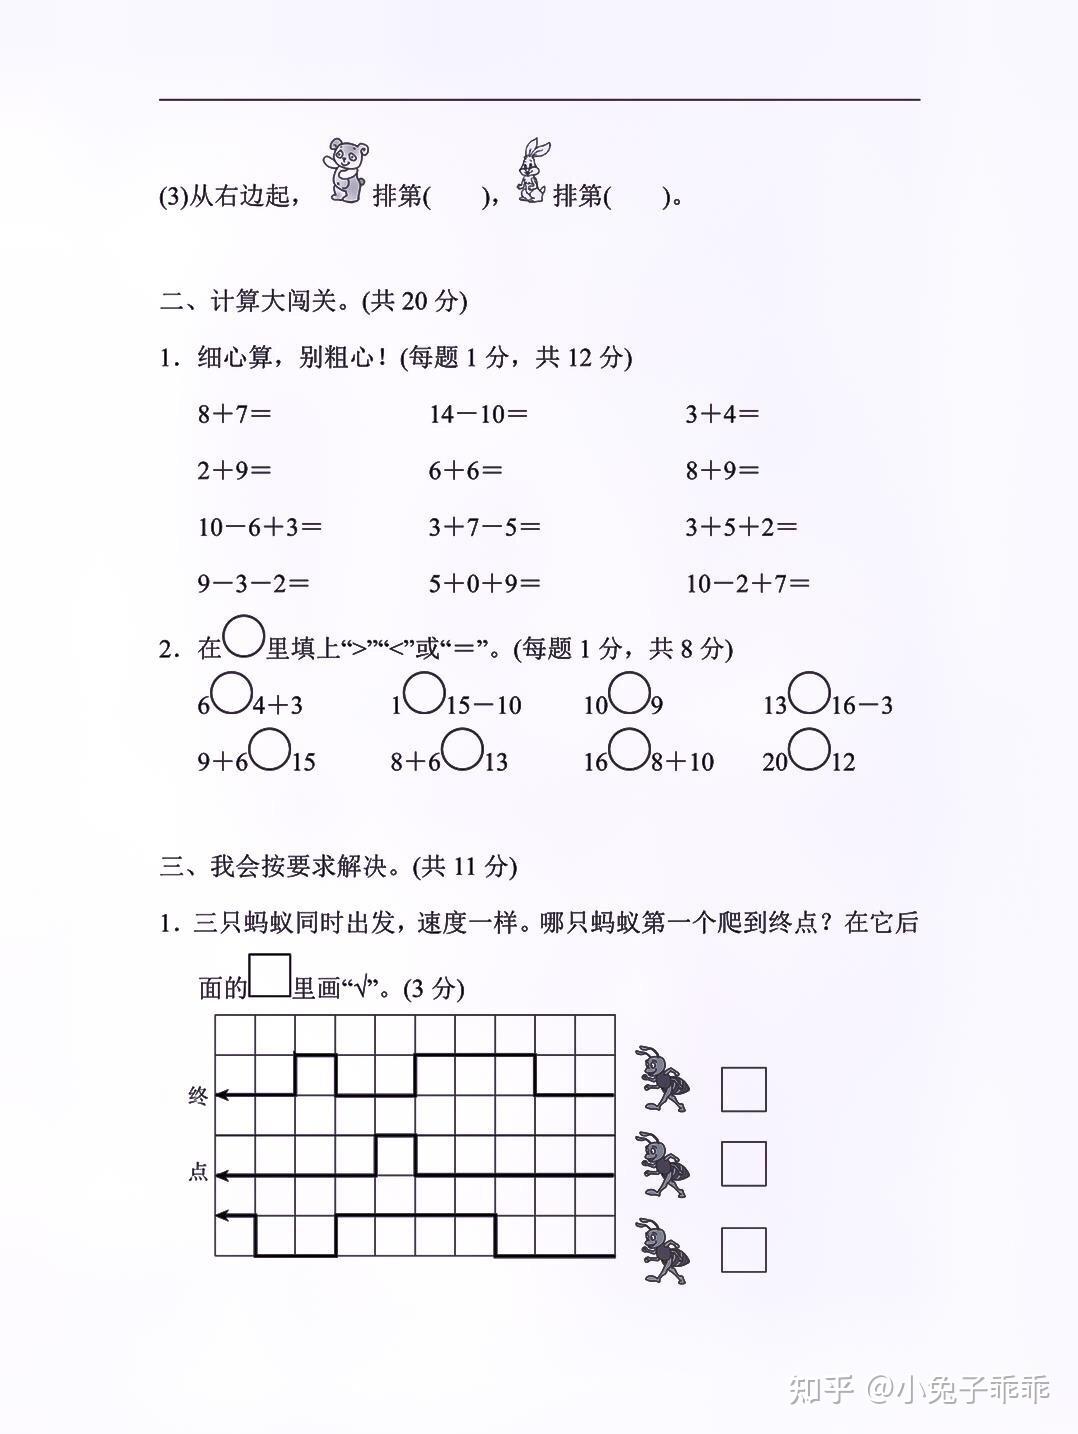 (3)从右边起， 排第( )， 排第( )。
二、计算大闯关。(共 20 分)
1．细心算，别粗心！(每题 1 分，共 12 分)
8＋7＝ 14－10＝ 3＋4＝
2＋9＝ 6＋6＝ 8＋9＝
10－6＋3＝ 3＋7－5＝ 3＋5＋2＝
9－3－2＝ 5＋0＋9＝ 10－2＋7＝
2．在○里填上“>”“<”或“＝”。(每题 1 分，共 8 分)
6○4＋3 1○15－10 10○9 13○16－3
9＋6○15 8＋6○13 16○8＋10 20○12
三、我会按要求解决。(共 11 分)
1．三只蚂蚁同时出发，速度一样。哪只蚂蚁第一个爬到终点？在它后
面的□里画“√”。(3 分)
终
点
知乎 @小兔子乖乖